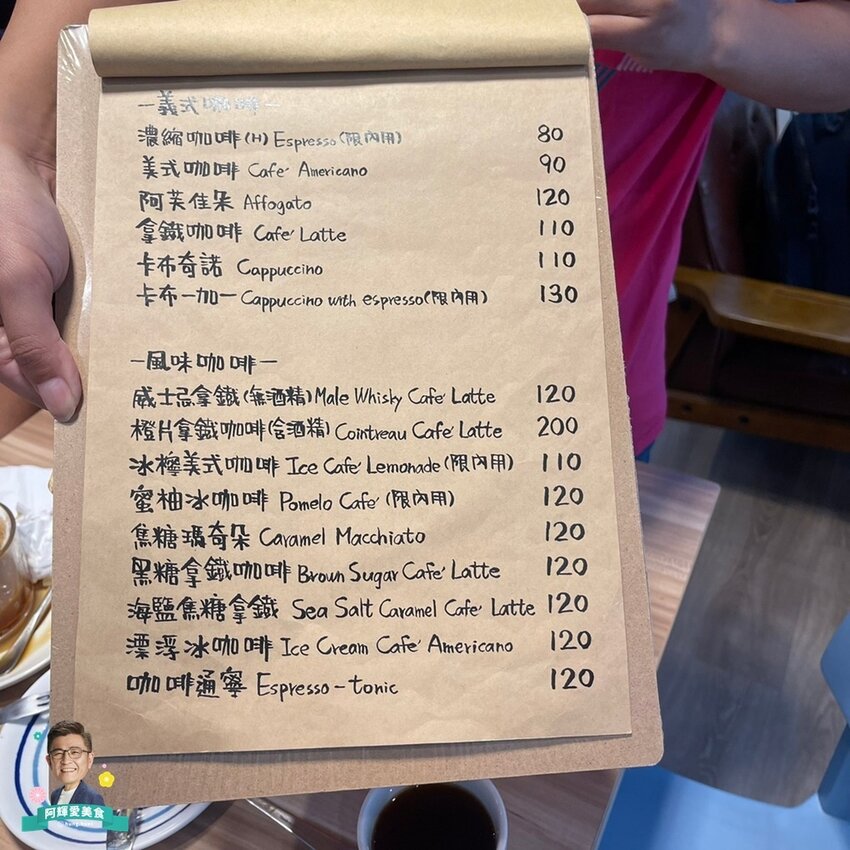 —義式咖啡—
濃縮咖啡(H) Espresso(限內用) 80
美式咖啡 Cafe' Americano 90
阿芙佳朵 Affogato 120
拿鐵咖啡 Cafe' Latte 110
卡布奇諾 Cappuccino 110
卡布一加一 Cappuccino with espresso(限內用) 130
—風味咖啡—
威士忌拿鐵(無酒精) Male Whisky Cafe' Latte 120
橙片拿鐵咖啡(含酒精) Cointreau Cafe' Latte 200
冰檸美式咖啡 Ice Cafe' Lemonade (限內用) 110
蜜柚冰咖啡 Pomelo Cafe' (限內用) 120
焦糖瑪奇朵 Caramel Macchiato 120
黑糖拿鐵咖啡 Brown Sugar Cafe' Latte 120
海鹽焦糖拿鐵 Sea Salt Caramel Cafe' Latte 120
漂浮冰咖啡 Ice Cream Cafe' Americano 120
咖啡通寧 Espresso-tonic 120
阿輝愛美食